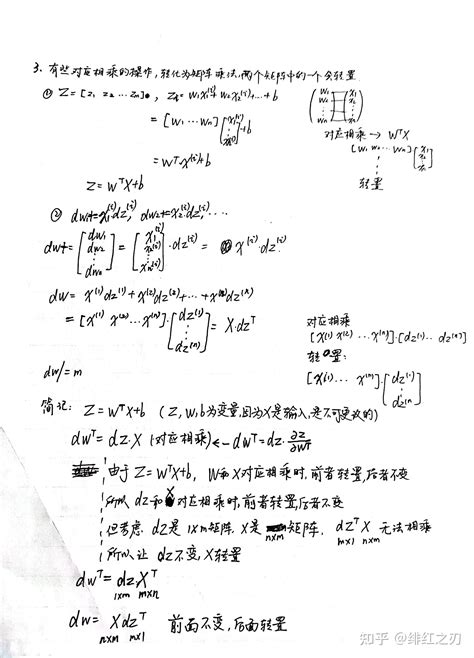 3、有些对应相乘的操作,转化为矩阵乘法,两个矩阵中的一个会转置
① Z = [z₁ z₂ … zₙ], zᵢ = w₁x₁⁽ⁱ⁾ + w₂x₂⁽ⁱ⁾ + … + b
= [w₁ … wₙ] [x₁⁽ⁱ⁾ ⋮ xₙ⁽ⁱ⁾] + b
= wᵀx⁽ⁱ⁾ + b
Z = wᵀX + b
对应相乘 → WᵀX
[w₁ w₂ … wₙ] [x₁ x₂ ⋮ xₙ]
转置
② dw₁ += x₁⁽ⁱ⁾dz⁽ⁱ⁾, dw₂ += x₂⁽ⁱ⁾dz⁽ⁱ⁾, …
dw += [dw₁ dw₂ ⋮ dwₙ] = [x₁⁽ⁱ⁾ x₂⁽ⁱ⁾ ⋮ xₙ⁽ⁱ⁾] · dz⁽ⁱ⁾ = x⁽ⁱ⁾ · dz⁽ⁱ⁾
dw = x⁽¹⁾dz⁽¹⁾ + x⁽²⁾dz⁽²⁾ + … + x⁽ⁿ⁾dz⁽ⁿ⁾
= [x⁽¹⁾ x⁽²⁾ … x⁽ⁿ⁾] · [dz⁽¹⁾ ⋮ dz⁽ⁿ⁾] = X·dzᵀ
dw /= m
对应相乘
[x⁽¹⁾ x⁽²⁾ … x⁽ⁿ⁾]·[dz⁽¹⁾ … dz⁽ⁿ⁾]
转置:
[x⁽¹⁾ … x⁽ⁿ⁾]·[dz⁽¹⁾ ⋮ dz⁽ⁿ⁾]
简记: Z = wᵀX + b (Z,W,b为变量,因为X是输入,是不可更改的)
dwᵀ = dz·X (对应相乘) ← dwᵀ = dz·∂z/∂wᵀ
由于Z = wᵀX + b, W和X对应相乘时,前者转置,后者不变
所以dz和X对应相乘时,前者转置,后者不变
但考虑dz是1×m矩阵,X是n×m矩阵, dzᵀ X 无法相乘
m×1 n×m
所以让dz不变,X转置
dwᵀ = dz Xᵀ
1×m m×n
dw = X dzᵀ 前面不变,后面转置
n×m m×1
知乎 @绯红之刃